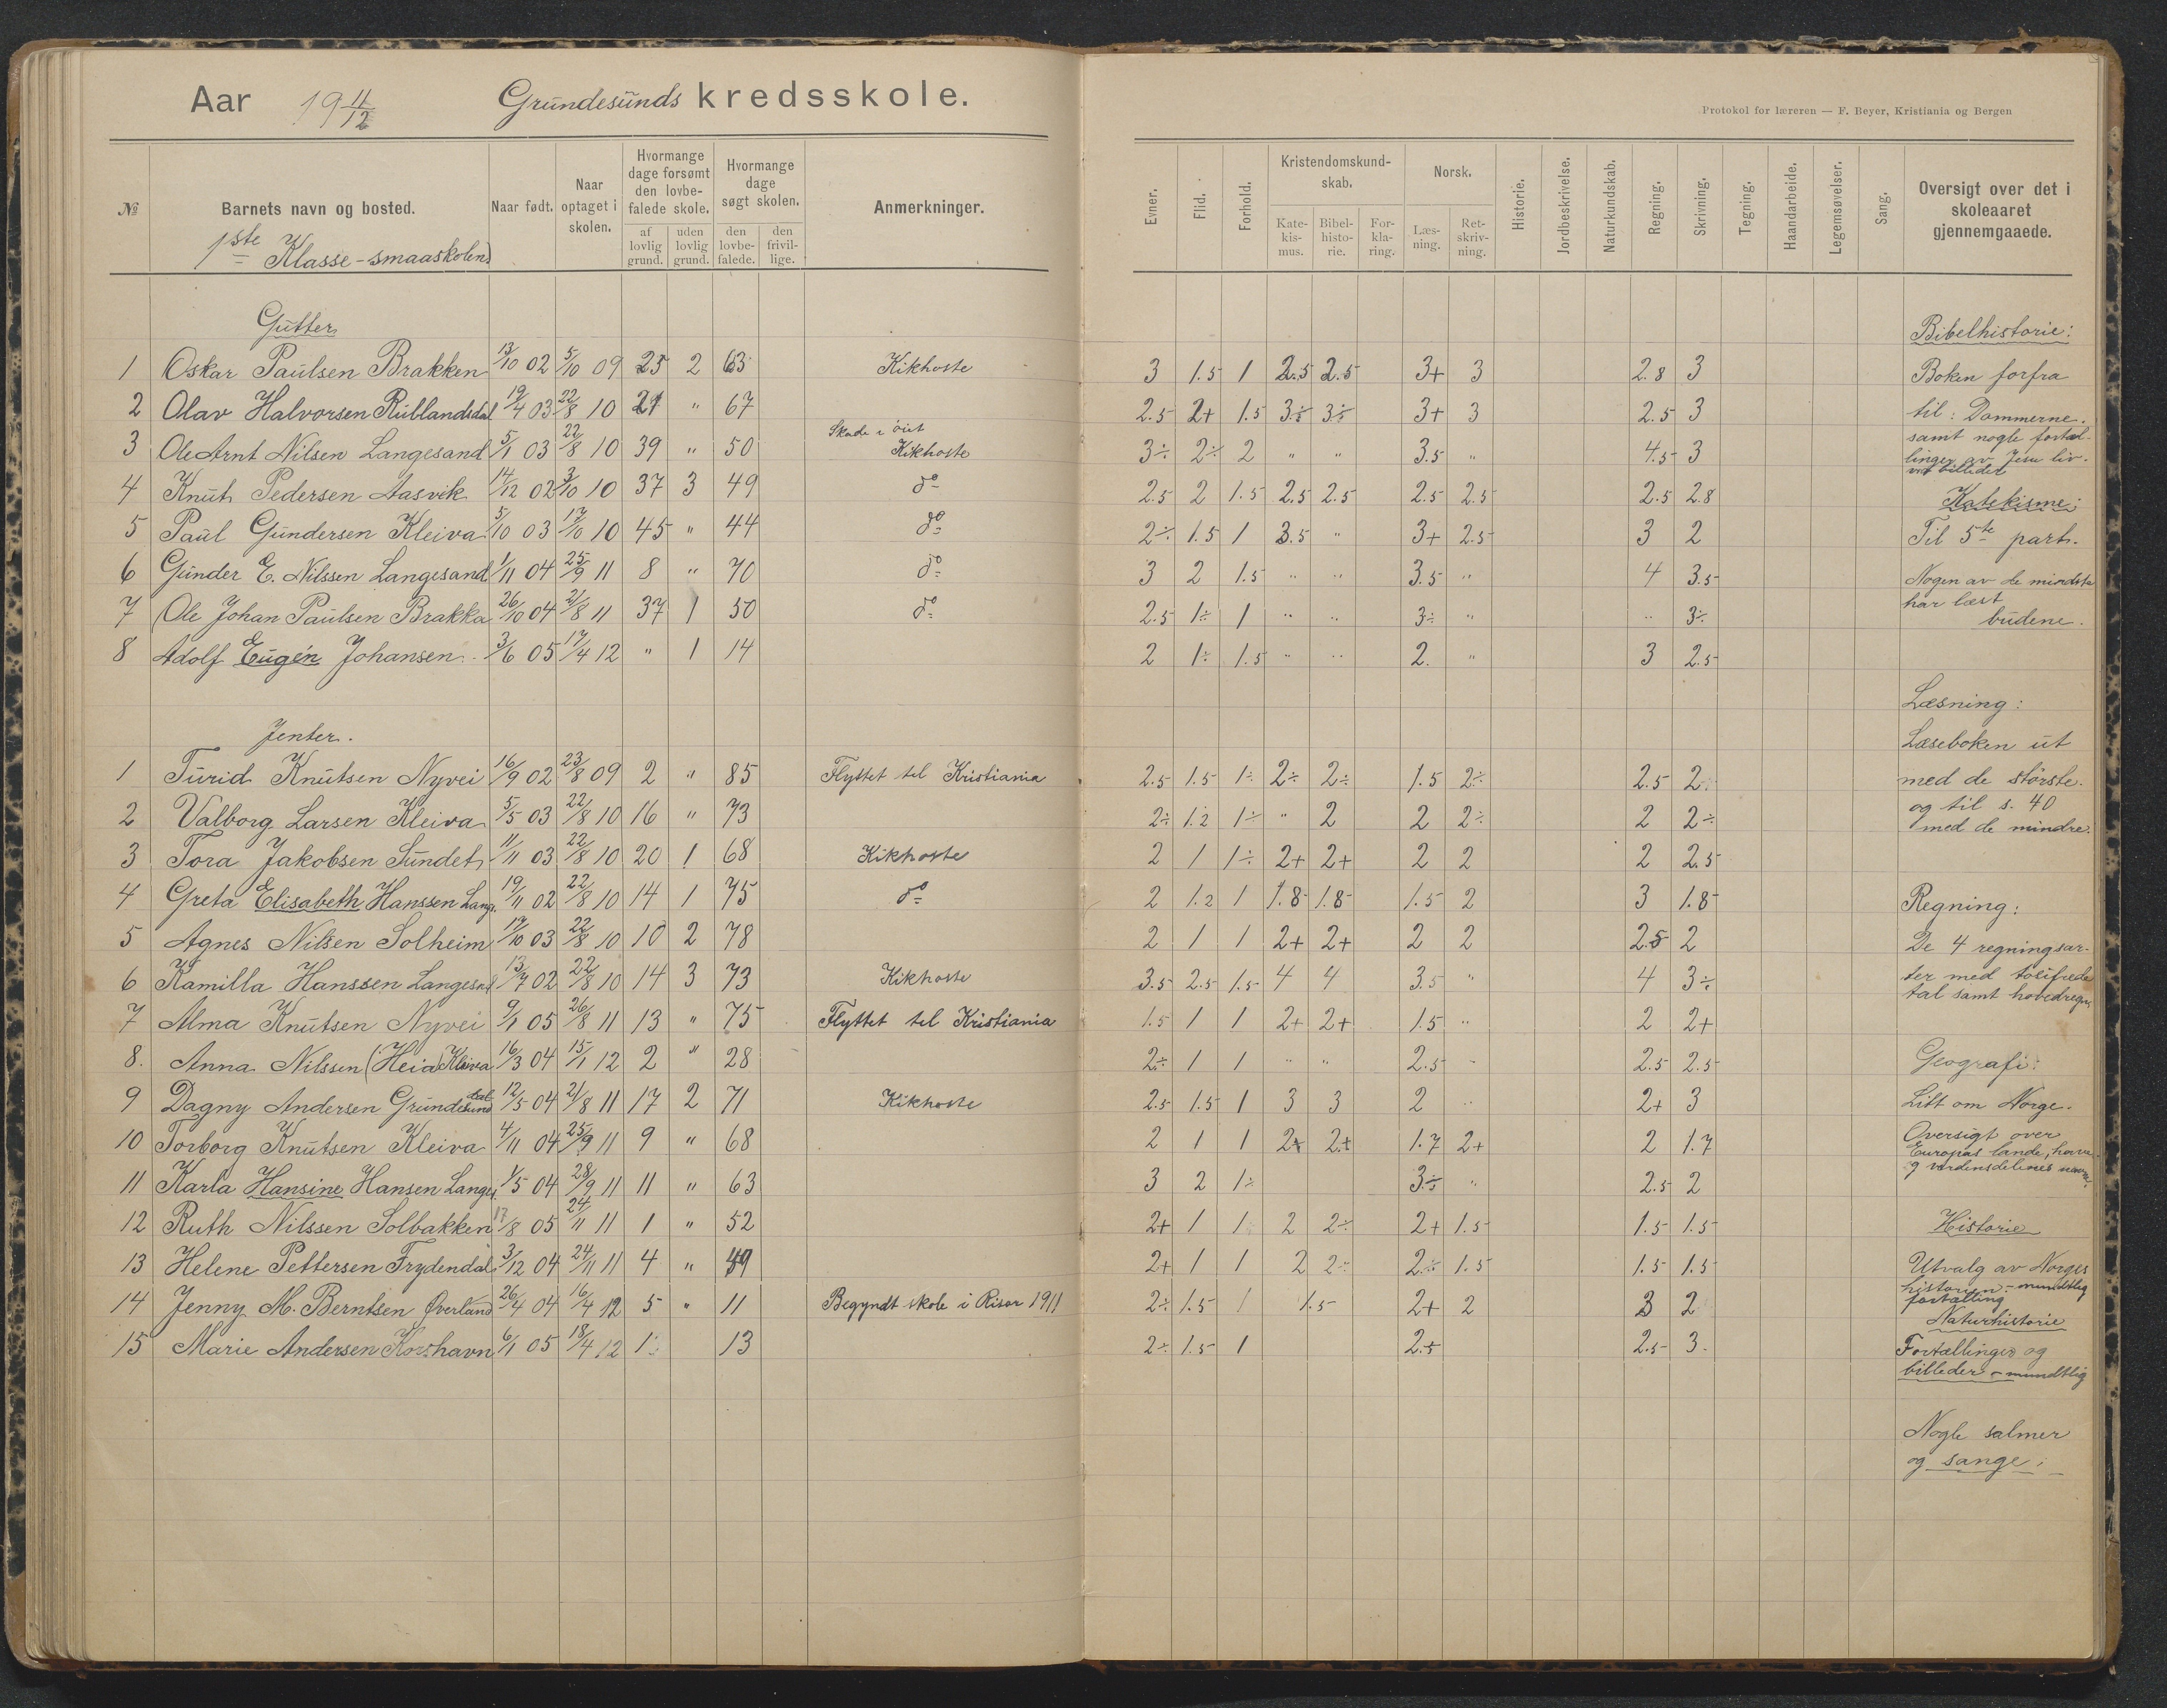 Aar 19 11/12 Grundesunds kredsskole.
Protokol for læreren — F. Beyer, Kristiania og Bergen
№ Barnets navn og bosted. Naar født. Naar optaget i skolen. Hvormange dage forsømt den lovbefalede skole. af lovlig grund. uden lovlig grund. Hvormange dage søgt skolen. den lovbefalede. den frivillige. Anmerkninger. Evner. Flid. Forhold. Kristendomskundskab. Katekismus. Bibelhistorie. Forklaring. Norsk. Læsning. Retskrivning. Historie. Jordbeskrivelse. Naturkundskab. Regning. Skrivning. Tegning. Haandarbeide. Legemsøvelser. Sang. Oversigt over det i skoleaaret gjennemgaaede.
1ste Klasse - smaaskolen
Gutter
1 Oskar Paulsen Brakken 13/10 02 5/10 09 25 2 63 Kikhoste 3 1.5 1 2.5 2.5 3+ 3 2.8 3
2 Olav Halvorsen Rublandsdal 19/4 03 22/8 10 21 " 67 2.5 2+ 1.5 3÷ 3÷ 3+ 3 2.5 3
3 Ole Arnt Nilsen Langesand 5/1 03 22/8 10 39 " 50 Skade i öiet Kikhoste 3÷ 2÷ 2 " " 3.5 " 4.5 3
4 Knut Pedersen Aasvik 14/12 02 3/10 10 37 3 49 do 2.5 2 1.5 2.5 2.5 2.5 2.5 2.5 2.8
5 Paul Gundersen Kleiva 5/10 03 17/10 10 45 " 44 do 2÷ 1.5 1 3.5 " 3+ 2.5 3 2
6 Gunder E. Nilssen Langesand 1/11 04 25/9 11 8 " 70 do 3 2 1.5 " " 3.5 " 4 3.5
7 Ole Johan Paulsen Brakka 26/10 04 21/8 11 37 1 50 do 2.5 1÷ 1 " " 3÷ " " 3÷
8 Adolf Eugén Johansen 3/6 05 17/4 12 " 1 14 2 1÷ 1.5 " " 2. " 3 2.5
Jenter.
1 Turid Knutsen Nyvei 16/9 02 23/8 09 2 " 85 Flyttet til Kristiania 2.5 1.5 1÷ 2÷ 2÷ 1.5 2÷ 2.5 2
2 Valborg Larsen Kleiva 5/5 03 22/8 10 16 " 73 2÷ 1.2 1÷ " 2 2 2÷ 2 2÷
3 Tora Jakobsen Sundet 11/11 03 22/8 10 20 1 68 Kikhoste 2 1 1÷ 2+ 2+ 2 2 2 2.5
4 Greta Elisabeth Hanssen Lang. 19/11 02 22/8 10 14 1 75 do 2 1.2 1 1.8 1.8 1.5 2 3 1.8
5 Agnes Nilsen Solheim 17/10 03 22/8 10 10 2 78 2 1 1 2+ 2+ 2 2 2.5 2
6 Kamilla Hanssen Langesnd 13/7 02 22/8 10 14 3 73 Kikhoste 3.5 2.5 1.5 4 4 3.5 " 4 3÷
7 Alma Knutsen Nyvei 9/1 05 26/8 11 13 " 75 Flyttet til Kristiania 1.5 1 1 2+ 2+ 1.5 " 2 2+
8. Anna Nilssen (Heia) Kleiva 16/3 04 15/1 12 2 " 28 2÷ 1 1 " " 2.5 " 2.5 2.5
9 Dagny Andersen Grundesund dal 12/5 04 21/8 11 17 2 71 Kikhoste 2.5 1.5 1 3 3 2 " 2+ 3
10 Torborg Knutsen Kleiva 4/11 04 25/9 11 9 " 68 2 1 1 2+ 2+ 1.7 2+ 2 1.7
11 Karla Hansine Hansen Langes. 1/5 04 28/9 11 11 " 63 3 2 1÷ 3÷ " 2.5 2
12 Ruth Nilssen Solbakken 17/8 05 24/11 11 1 " 52 2+ 1 1 2 2÷ 2+ 1.5 1.5 1.5
13 Helene Pettersen Frydendal 3/12 04 24/11 11 4 " 49 2+ 1 1 2 2÷ 2÷ 1.5 1.5 1.5
14 Jenny M. Berntsen Øverland 26/4 04 16/4 12 5 " 11 Begyndt skole i Risør 1911 2÷ 1.5 1 1.5 2+ 2 3 2
15 Marie Andersen Korshavn 6/1 05 18/4 12 1 13 2÷ 1.5 1 2.5 2.5 3
Bibelhistorie:
Boken forfra
til: Dommerne.
samt nogle fortæl-
linger av Jesu liv.
ved billeder
Katekisme:
Til 5te part.
Nogen av de mindste
har læst
budene.
Læsning:
Læseboken ut
med de største.
og til s. 40
med de mindre.
Regning:
De 4 regningsar-
ter med tosifrede
tal samt hovedregn.
Geografi:
Litt om Norge.
Oversigt over
Europas lande, have
og verdensdelenes navne.
Historie
Utvalg av Norges
historien - mundtlig
fortælling
Naturhistorie
Fortællinger og
billeder - mundtlig
Nogle salmer
og sange.